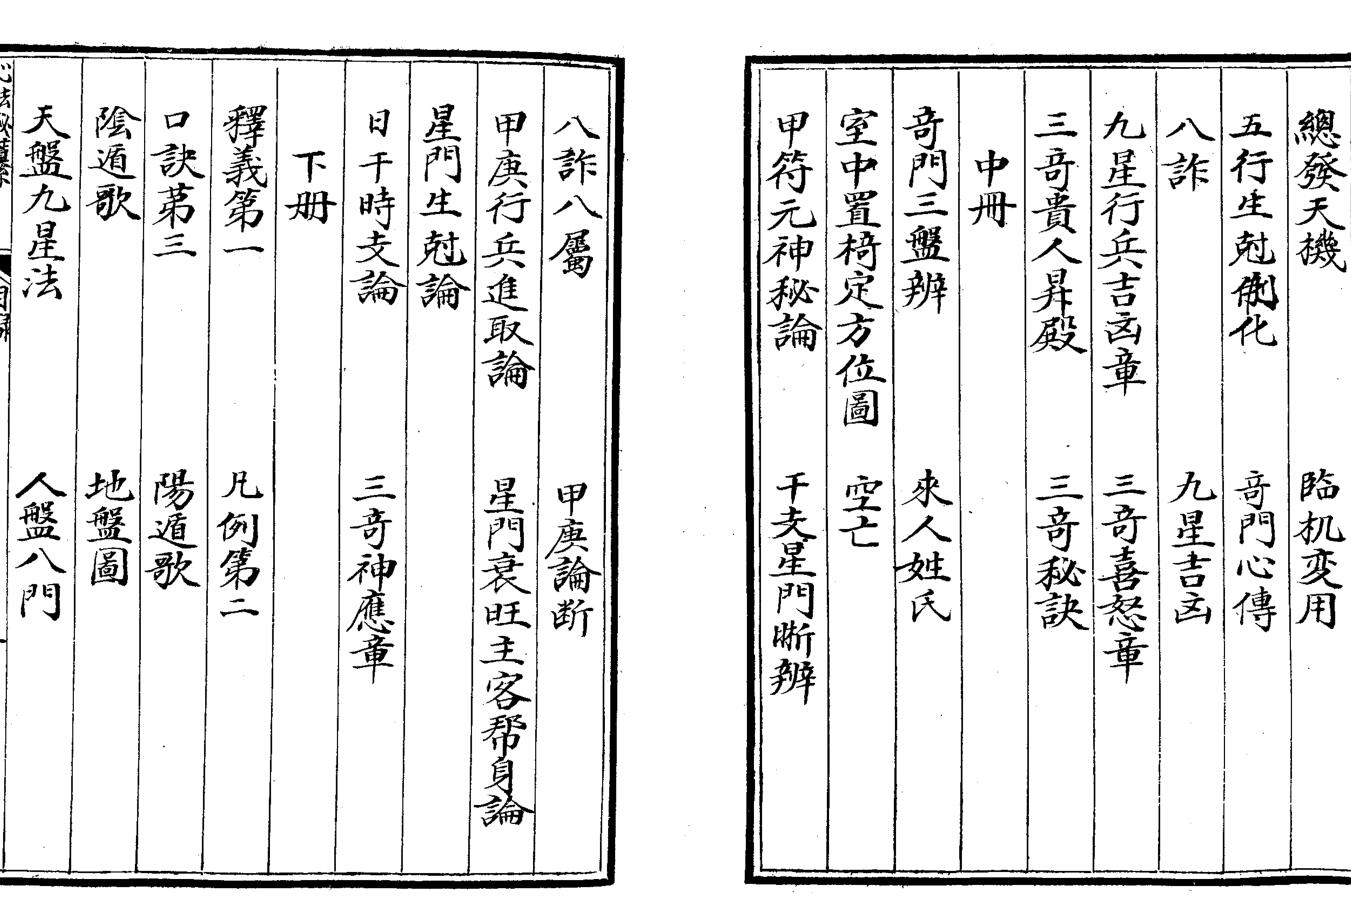 總發天機 臨机变用
五行生尅制化 奇門心傳
八詐 九星吉凶
九星行兵吉凶章 三奇喜怒章
三奇貴人昇殿 三奇秘訣
中冊
奇門三盤辨 來人姓氏
室中置椅定方位圖 空亡
甲符元神秘論 干支星門晰辨
八詐八屬 甲庚論断
甲庚行兵進取論 星門衰旺主客帮身論
星門生尅論
日干時支論 三奇神應章
下册
釋義第一 凡例第二
口訣苐三 陽遁歌
陰遁歌 地盤圖
天盤九星法 人盤八門